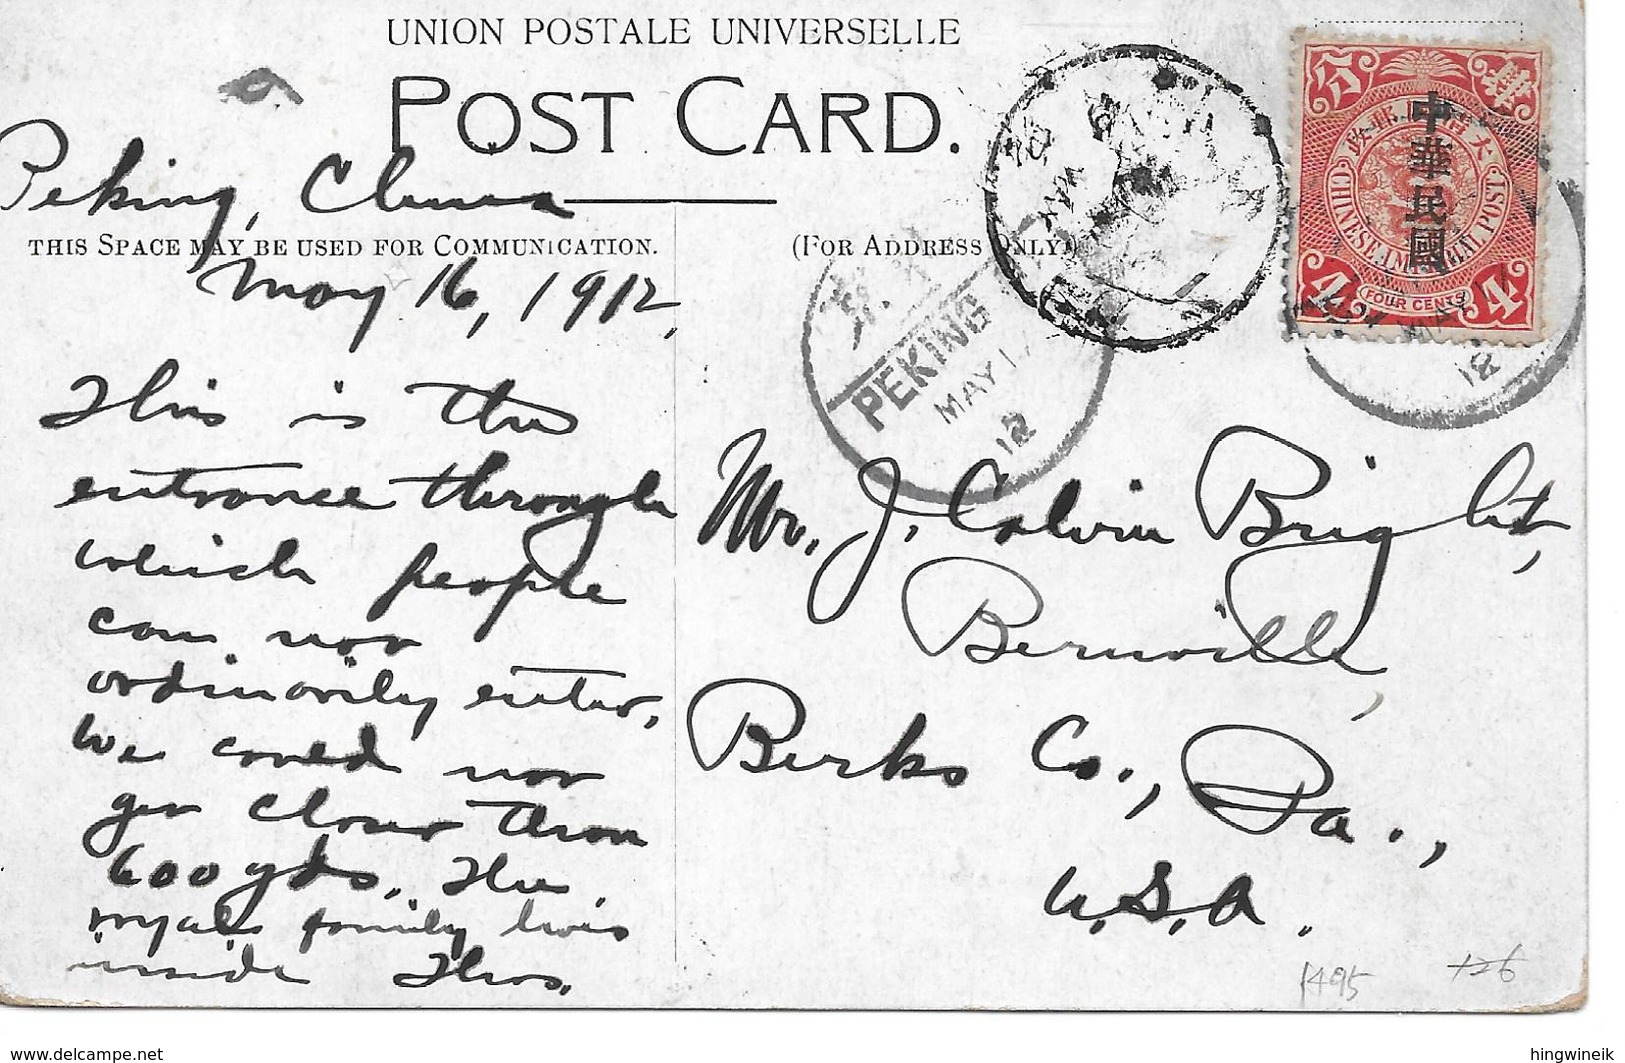 UNION POSTALE UNIVERSELLE
POST CARD.
Peking, China
THIS SPACE MAY BE USED FOR COMMUNICATION.
(FOR ADDRESS ONLY)
May 16, 1912,
This is the
entrance through
which people
can not
ordinarily enter.
We could not
get closer than
600 yds. The
royal family lives
inside
Mr. J. Calvin Bright,
Bernville,
Berks Co., Pa.,
U.S.A.
中華民國
CHINESE IMPERIAL POST
FOUR CENTS
4
4
PEKING
MAY 17
12
MAY 17
12
1495
126
www.delcampe.net
hingwineik